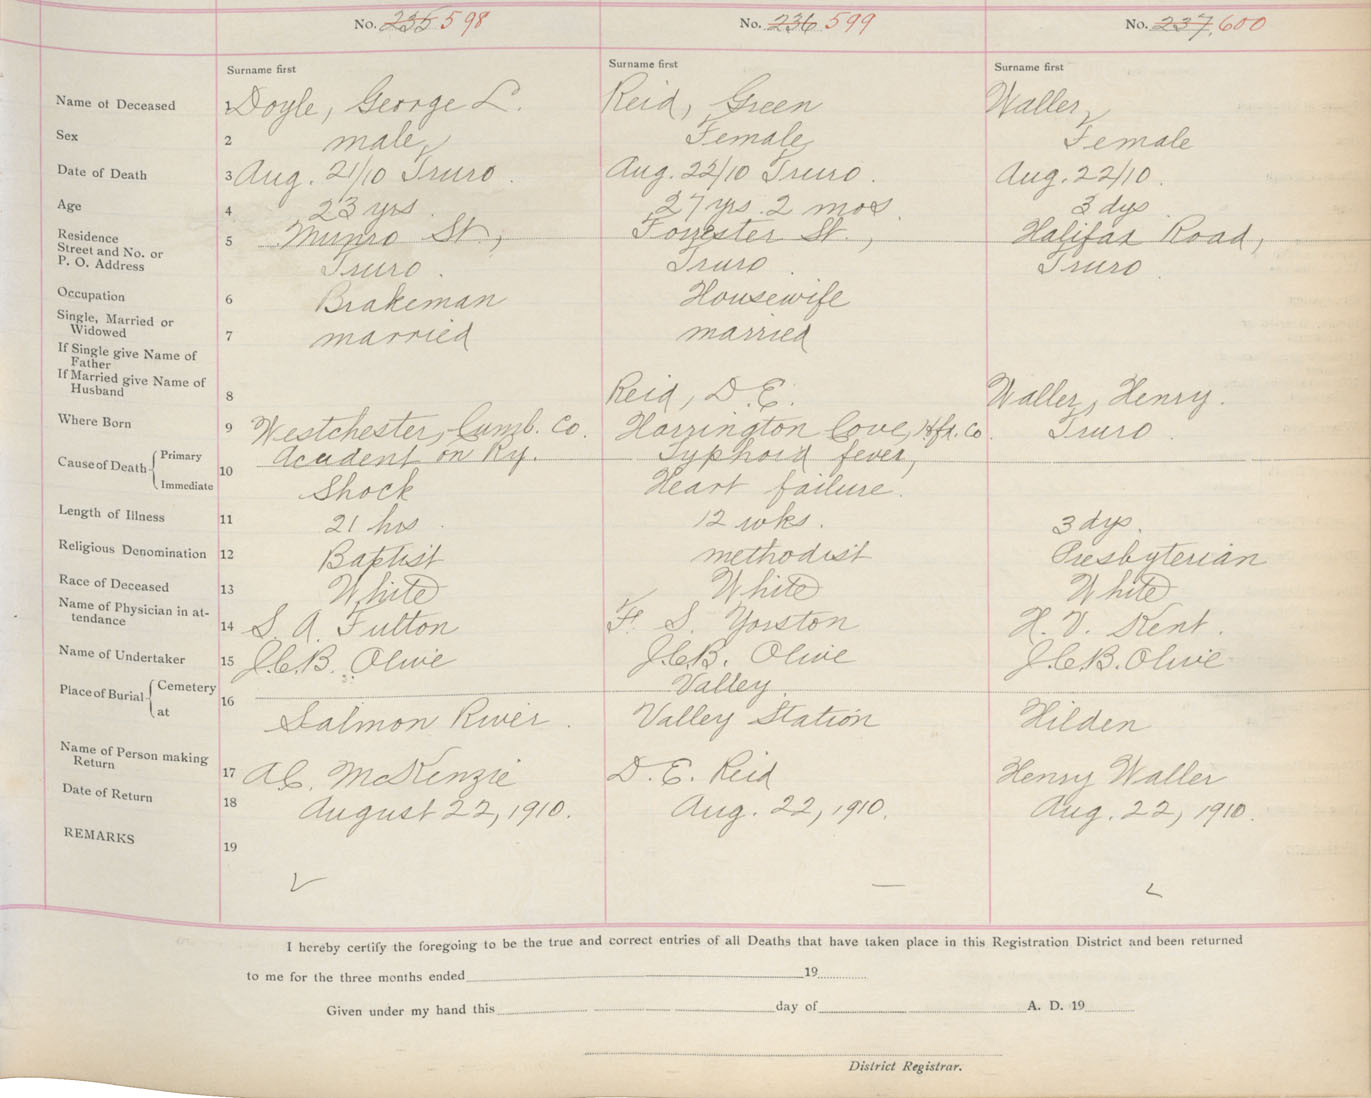 No. 235 598 No. 236 599 No. 237 600
Surname first Surname first Surname first
Name of Deceased 1 Doyle, George L. Reid, Green Waller,
Sex 2 male Female Female
Date of Death 3 Aug. 21/10 Truro. Aug. 22/10 Truro. Aug. 22/10.
Age 4 23 yrs. 27 yrs. 2 mos. 3 dys
Residence
Street and No. or 5 Munro St., Forrester St., Halifax Road,
P. O. Address Truro. Truro. Truro.
Occupation 6 Brakeman Housewife
Single, Married or
Widowed 7 married married
If Single give Name of
Father
If Married give Name of
Husband 8 Reid, D. E. Waller, Henry.
Where Born 9 Westchester, Cumb. Co. Harrington Cove, Hfx. Co. Truro.
Cause of Death Primary 10 Accident on Ry. Typhoid fever,
Immediate Shock Heart failure.
Length of Illness 11 21 hrs. 12 wks. 3 dys.
Religious Denomination 12 Baptist methodist Presbyterian
Race of Deceased 13 White White White
Name of Physician in at-
tendance 14 S. A. Fulton F. S. Yorston H. V. Kent.
Name of Undertaker 15 J.C.B. Olive J.C.B. Olive J.C.B. Olive
Place of Burial Cemetery 16 Valley.
at Salmon River. Valley Station Hilden
Name of Person making
Return 17 A.C. McKenzie D. E. Reid Henry Waller
Date of Return 18 August 22, 1910. Aug. 22, 1910. Aug. 22, 1910.
REMARKS 19
I hereby certify the foregoing to be the true and correct entries of all Deaths that have taken place in this Registration District and been returned
to me for the three months ended 19
Given under my hand this day of A. D. 19
District Registrar.